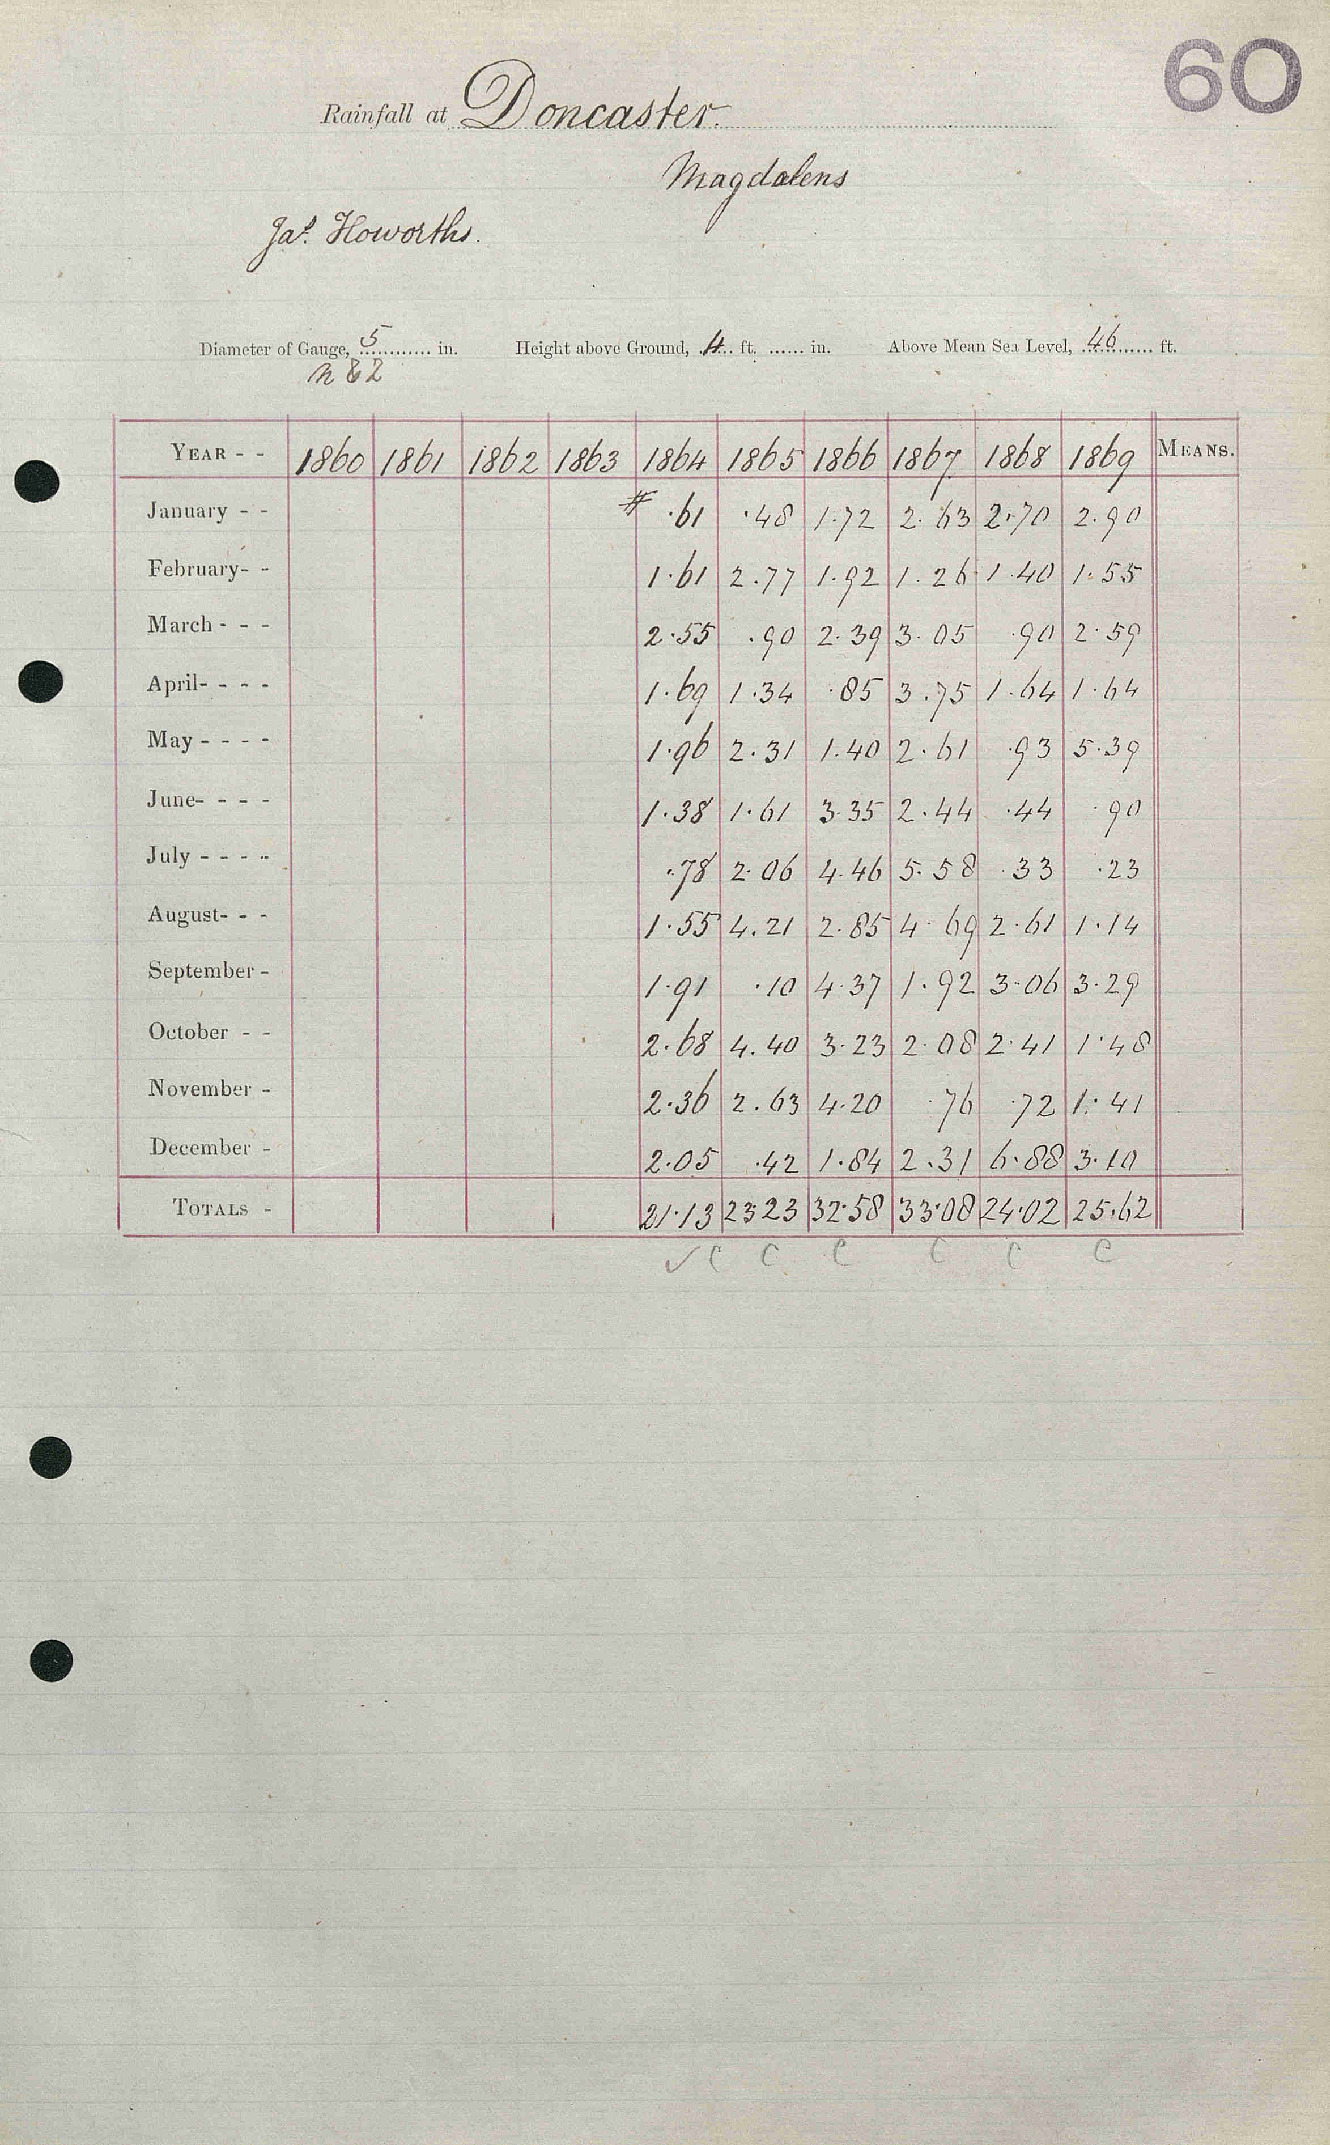 60
Rainfall at Doncaster.
Magdalens
Jas. Howorths.
Diameter of Gauge, 5 in. Height above Ground, 4 ft. in. Above Mean Sea Level, 46 ft.
n & 2
YEAR - - 1860 1861 1862 1863 1864 1865 1866 1867 1868 1869 MEANS.
January - - # .61 .48 1.72 2.63 2.70 2.90
February- - 1.61 2.77 1.92 1.26 1.40 1.55
March - - - 2.55 .90 2.39 3.05 .90 2.59
April- - - - 1.69 1.34 .85 3.75 1.64 1.64
May - - - - 1.96 2.31 1.40 2.61 .93 5.39
June- - - - 1.38 1.61 3.35 2.44 .44 .90
July - - - - .78 2.06 4.46 5.58 .33 .23
August- - - 1.55 4.21 2.85 4.69 2.61 1.14
September - 1.91 .10 4.37 1.92 3.06 3.29
October - - 2.68 4.40 3.23 2.08 2.41 1.48
November - 2.36 2.63 4.20 .76 .72 1.41
December - 2.05 .42 1.84 2.31 6.88 3.10
TOTALS - 21.13 23.23 32.58 33.08 24.02 25.62
✓ c c c c c c